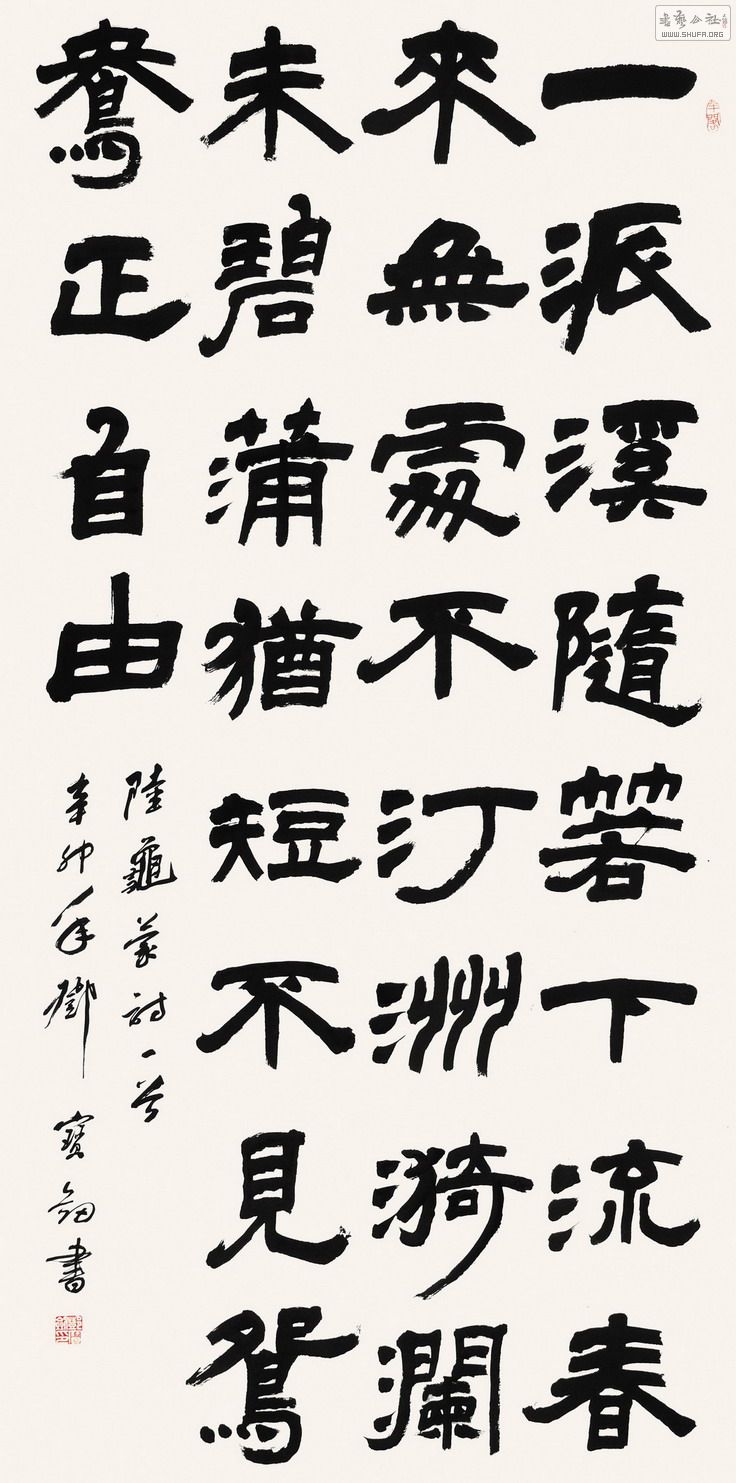 一派溪隨箬下流春
來無處不汀洲漪瀾
未碧蒲猶短不見鴛
鴦正自由
陸龜蒙詩一首
辛卯年鄧寶劍書
書藝公社
WWW.SHUFA.ORG